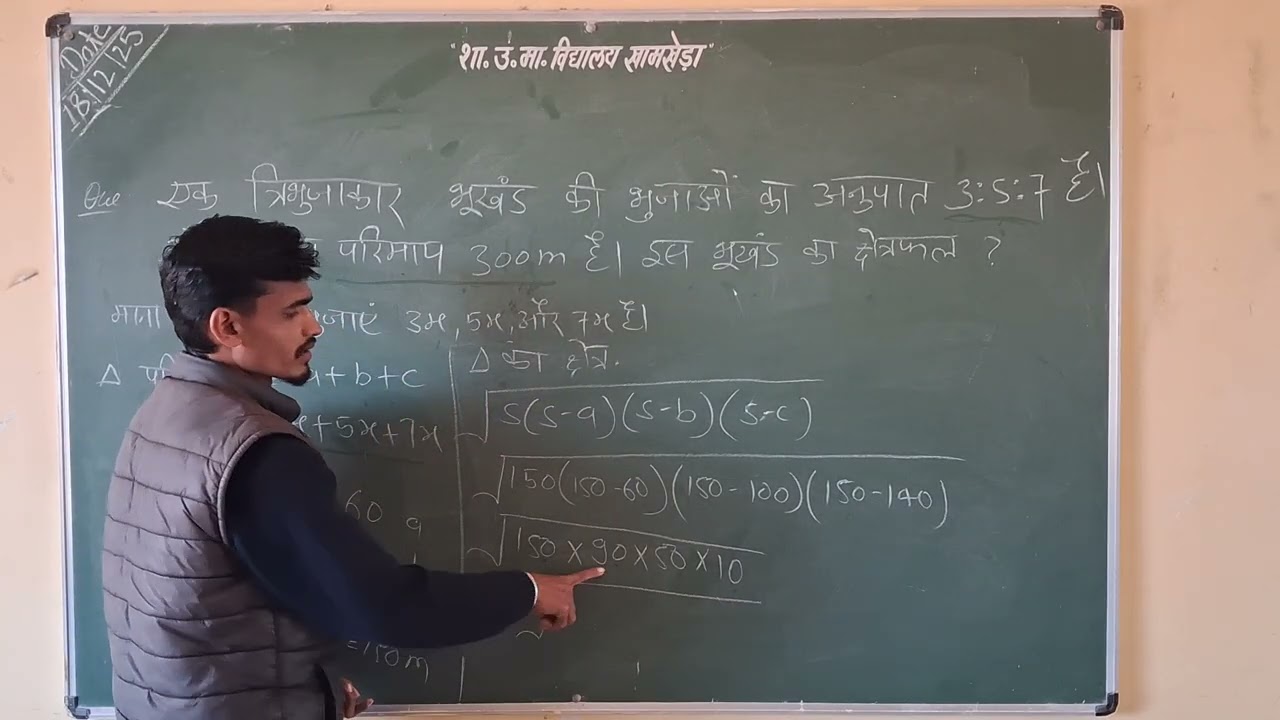 Date
18/12/25
"शा. उ. मा. विद्यालय खामखेड़ा"
Que एक त्रिभुजाकार भूखंड की भुजाओं का अनुपात 3:5:7 है।
परिमाप 300m है। इस भूखंड का क्षेत्रफल ?
माना 3x, 5x, और 7x है।
Δ a+b+c
x+5x+7x
60 a
=150m
Δ का क्षेत्र.
√s(s-a)(s-b)(s-c)
√150(150-60)(150-100)(150-140)
√150×90×50×10